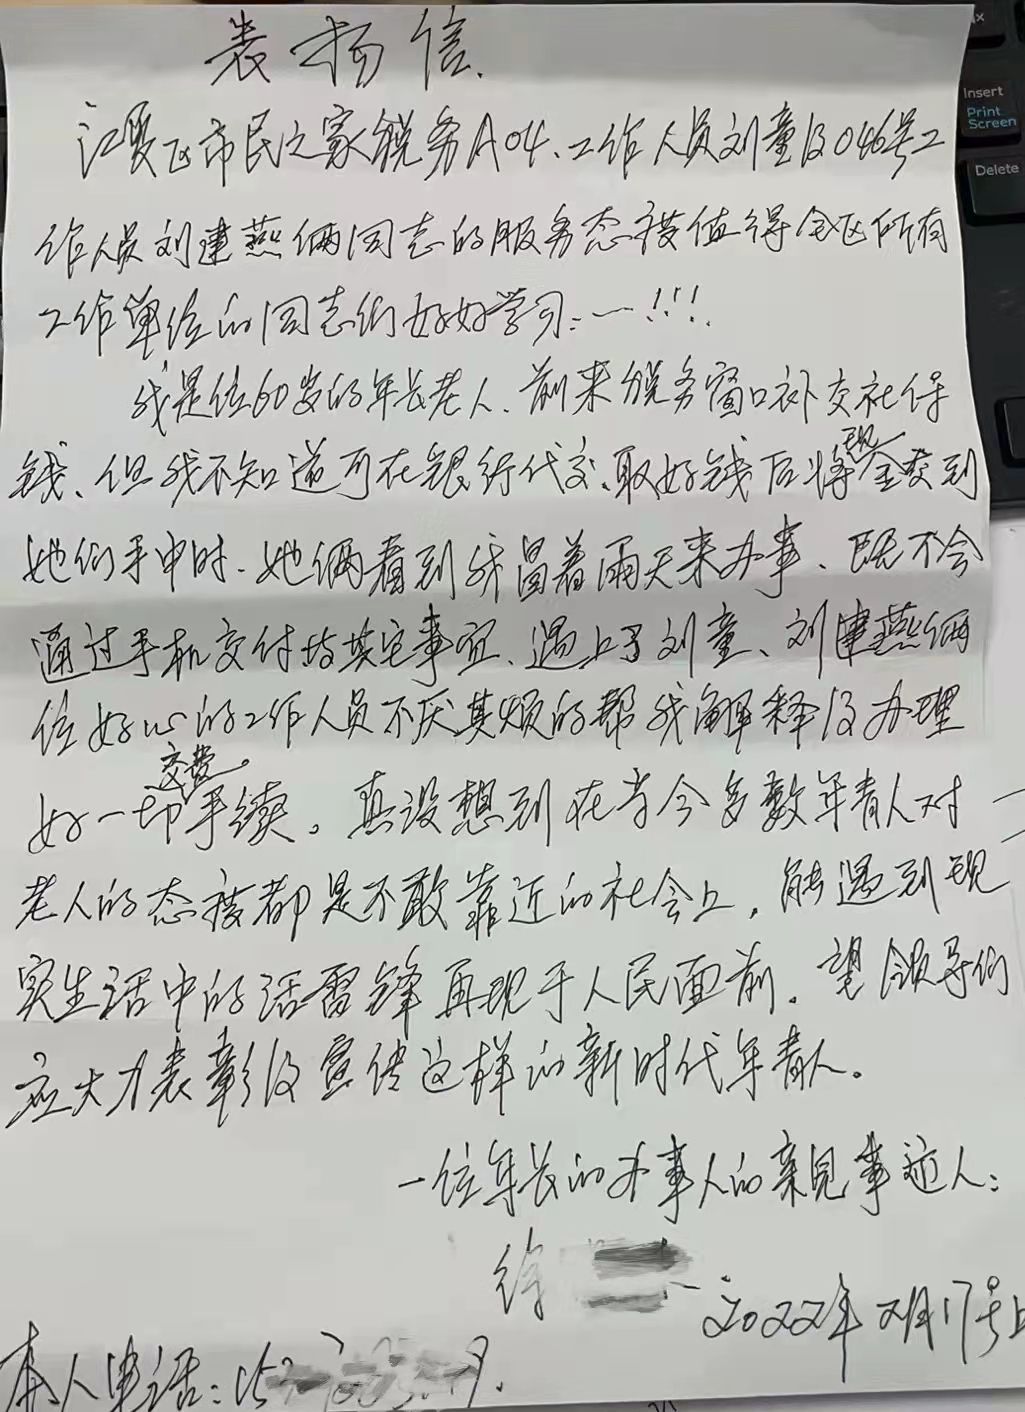 表扬信.
江夏区市民之家税务A04、工作人员刘童及046号工
作人员刘建燕俩同志的服务态度值得全区所有
工作单位的同志们好好学习:一!!!
我是位60岁的年长老人、前来税务窗口补交社保
钱、但我不知道可在银行代交、取好钱后将现金交到
她们手中时、她俩看到我冒着雨天来办事、既不会
通过手机交付与其它事宜、遇上了刘童、刘建燕俩
位好心的工作人员不厌其烦的帮我解释及办理
好一切交费手续。真没想到在当今多数年青人对
老人的态度都是不敢靠近的社会上，能遇到现
实生活中的活雷锋再现于人民面前。望领导们
应大力表彰及宣传这样的新时代年青人。
一位年长的办事人的亲见事迹人:
徐
2022年2月17号上
本人电话:
Insert
Print
Screen
Delete